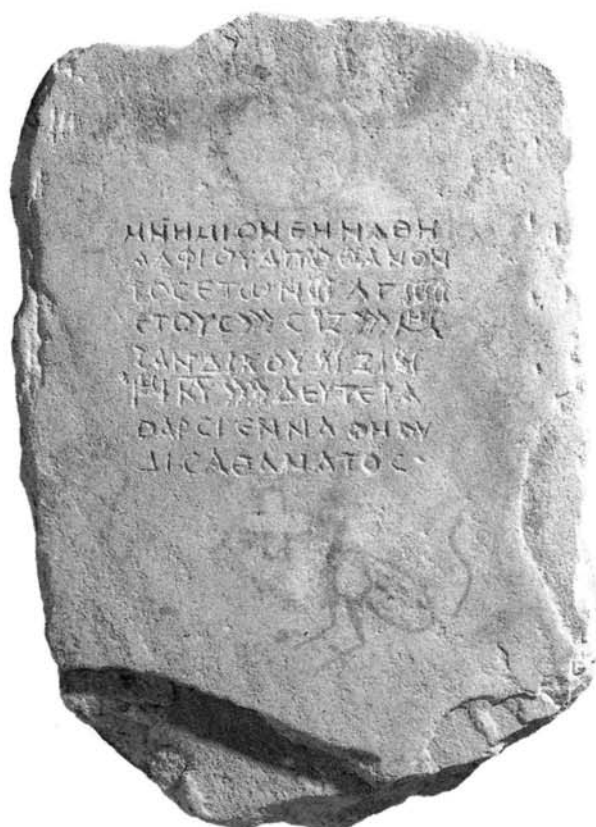 ΜΝΗΜΙΟΝ ΕΝΝΑΘΗ
ΑΛΦΙΟΥ ΑΠΟΘΑΝΟΝ
ΤΟС ΕΤΩΝ ΛΓ
ΕΤΟΥС СΙΖ
ΞΑΝΔΙΚΟΥ ΙΖ
ΚΥ ΔΕΥΤΕΡΑ
ΘΑΡСΙ ΕΝΝΑΘΗ ΟΥ
ΔΙС ΑΘΑΝΑΤΟС